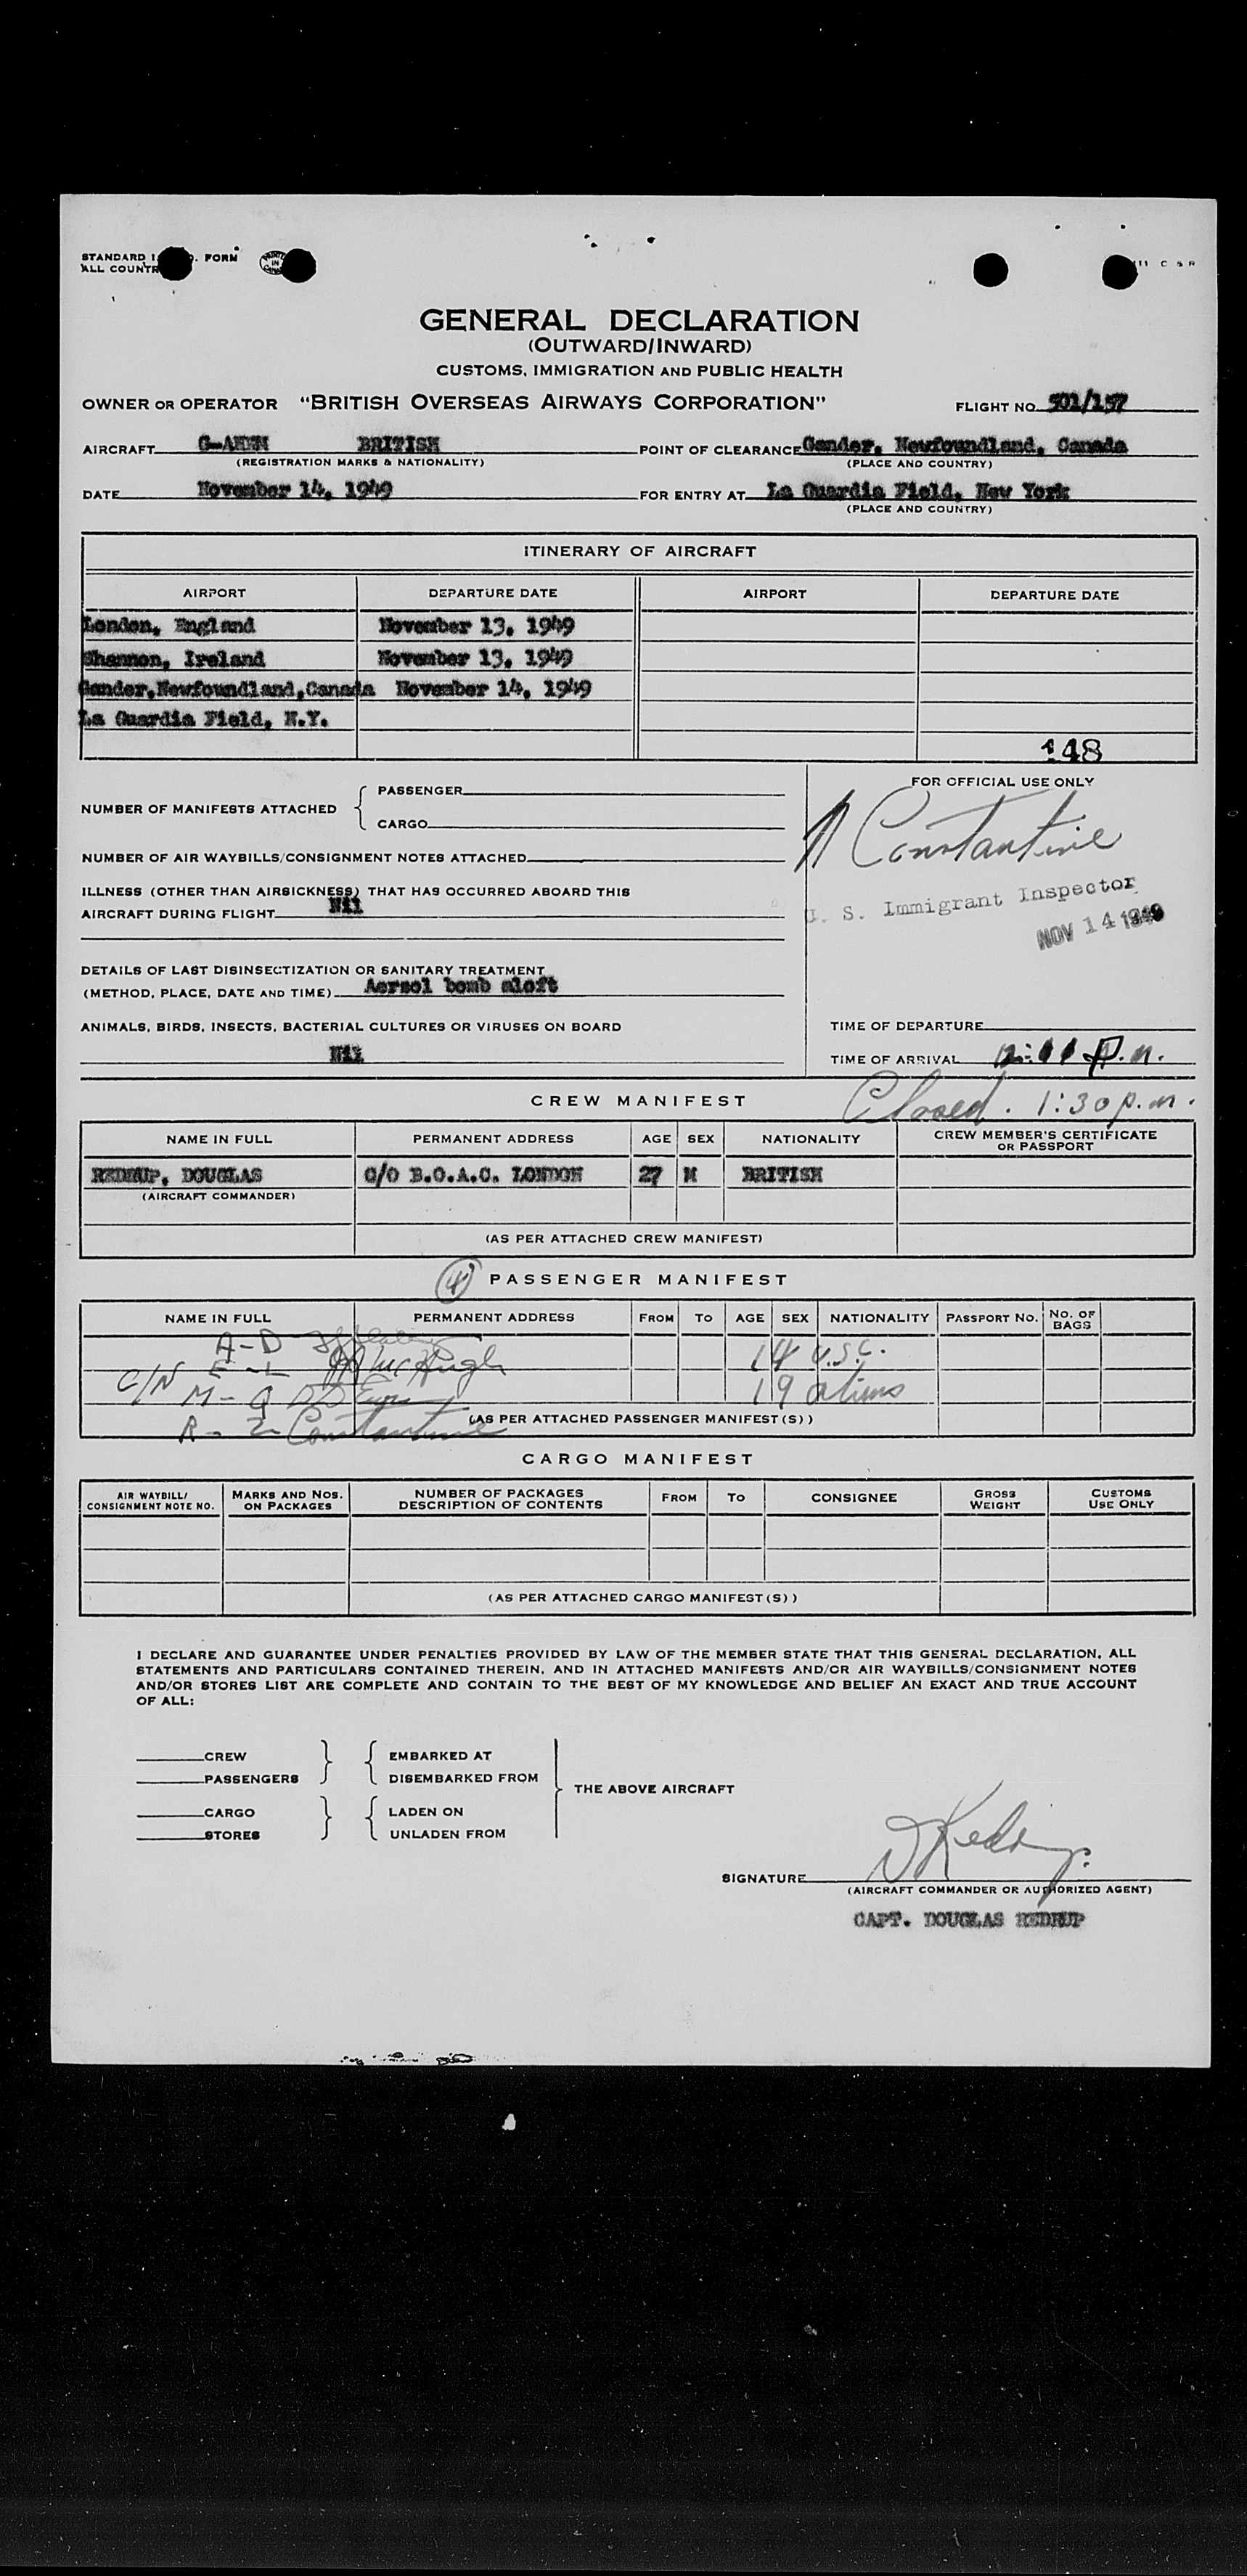 STANDARD I. . . FORM
ALL COUNTR
GENERAL DECLARATION
(OUTWARD/INWARD)
CUSTOMS, IMMIGRATION AND PUBLIC HEALTH
OWNER OR OPERATOR "BRITISH OVERSEAS AIRWAYS CORPORATION" FLIGHT NO. 501/157
AIRCRAFT BRITISH POINT OF CLEARANCE Gander, Newfoundland, Canada
(REGISTRATION MARKS & NATIONALITY) (PLACE AND COUNTRY)
DATE November 14, 1949 FOR ENTRY AT La Guardia Field, New York
(PLACE AND COUNTRY)
ITINERARY OF AIRCRAFT
AIRPORT DEPARTURE DATE AIRPORT DEPARTURE DATE
London, England November 13, 1949
Shannon, Ireland November 13, 1949
Gander,Newfoundland,Canada November 14, 1949
La Guardia Field, N.Y.
148
FOR OFFICIAL USE ONLY
NUMBER OF MANIFESTS ATTACHED { PASSENGER
CARGO
Constantine
NUMBER OF AIR WAYBILLS/CONSIGNMENT NOTES ATTACHED
U. S. Immigrant Inspector
NOV 14 1949
ILLNESS (OTHER THAN AIRSICKNESS) THAT HAS OCCURRED ABOARD THIS
AIRCRAFT DURING FLIGHT Nil
DETAILS OF LAST DISINSECTIZATION OR SANITARY TREATMENT
(METHOD, PLACE, DATE AND TIME) Aersol bomb aloft
ANIMALS, BIRDS, INSECTS, BACTERIAL CULTURES OR VIRUSES ON BOARD
Nil
TIME OF DEPARTURE
TIME OF ARRIVAL 12:11 P.M.
Closed. 1:30 p.m.
CREW MANIFEST
NAME IN FULL PERMANENT ADDRESS AGE SEX NATIONALITY CREW MEMBER'S CERTIFICATE OR PASSPORT
REDRUP, DOUGLAS C/O B.O.A.C. LONDON 27 M BRITISH
(AIRCRAFT COMMANDER)
(AS PER ATTACHED CREW MANIFEST)
(4) PASSENGER MANIFEST
NAME IN FULL PERMANENT ADDRESS FROM TO AGE SEX NATIONALITY PASSPORT NO. NO. OF BAGS
A-D 14 U.S.C.
C/N E-L McHugh
M-Q 19 aliens
R-Z Constantine
(AS PER ATTACHED PASSENGER MANIFEST(S))
CARGO MANIFEST
AIR WAYBILL/ CONSIGNMENT NOTE NO. MARKS AND NOS. ON PACKAGES NUMBER OF PACKAGES DESCRIPTION OF CONTENTS FROM TO CONSIGNEE GROSS WEIGHT CUSTOMS USE ONLY
(AS PER ATTACHED CARGO MANIFEST(S))
I DECLARE AND GUARANTEE UNDER PENALTIES PROVIDED BY LAW OF THE MEMBER STATE THAT THIS GENERAL DECLARATION, ALL
STATEMENTS AND PARTICULARS CONTAINED THEREIN, AND IN ATTACHED MANIFESTS AND/OR AIR WAYBILLS/CONSIGNMENT NOTES
AND/OR STORES LIST ARE COMPLETE AND CONTAIN TO THE BEST OF MY KNOWLEDGE AND BELIEF AN EXACT AND TRUE ACCOUNT
OF ALL:
CREW } { EMBARKED AT
PASSENGERS DISEMBARKED FROM
THE ABOVE AIRCRAFT
CARGO } { LADEN ON
STORES UNLADEN FROM
SIGNATURE D Redrup.
(AIRCRAFT COMMANDER OR AUTHORIZED AGENT)
CAPT. DOUGLAS REDRUP